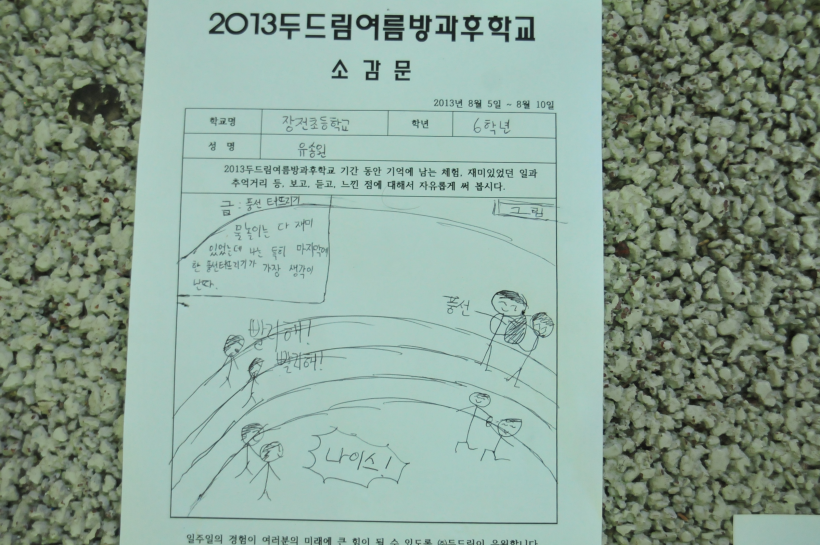 2013두드림여름방과후학교
소감문
2013년 8월 5일 ~ 8월 10일
학교명 장전초등학교 학년 6학년
성 명 유승원
2013두드림여름방과후학교 기간 동안 기억에 남는 체험, 재미있었던 일과
추억거리 등, 보고, 듣고, 느낀 점에 대해서 자유롭게 써 봅시다.
글 : 풍선 터뜨리기
물놀이는 다 재미
있었는데 나는 특히 마지막에
한 풍선터뜨리기가 가장 생각이
난다.
그림
풍선
빨리해!
빨리해!
나이스!
일주일의 경험이 여러분의 미래에 큰 힘이 될 수 있도록 ㈜두드림이 응원합니다